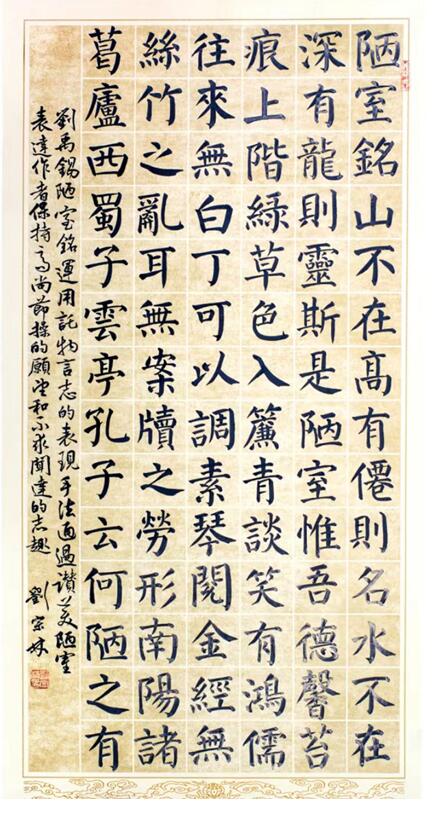 陋室銘山不在高有僊則名水不在
深有龍則靈斯是陋室惟吾德馨苔
痕上階綠草色入簾青談笑有鴻儒
往來無白丁可以調素琴閱金經無
絲竹之亂耳無案牘之勞形南陽諸
葛廬西蜀子雲亭孔子云何陋之有
劉禹錫陋室銘運用託物言志的表現手法通過讚美陋室
表達作者保持高尚節操的願望和不求聞達的志趣 劉宗林